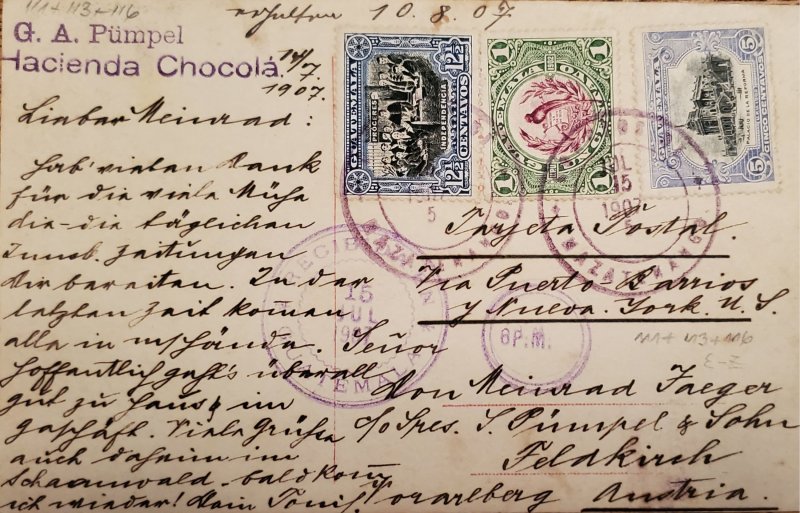 111+113+116
erhalten 10.8.07.
G. A. Pümpel
Hacienda Chocolá.
14/7.
1907.
Lieber Meinrad:
Hab' vielen Dank
für die viele Mühe
die - die täglichen
Innsb. Zeitungen
dir bereiten. In der
letzten Zeit kom̅en
alle in
Hoffentlich geht's überall
gut zu Haus & im
Geschäft. Viele Grüße
auch daheim im
Schaanwald - bald kom̅
ich wieder! Dein Toni.
GUATEMALA
PRÓCERES INDEPENDENCIA
12½ 12½
CENTAVOS
GUATEMALA
UN CENTAVO
1 1
1 1
GUATEMALA
PALACIO DE LA REFORMA
5 5
CINCO CENTAVOS
MAZATENANGO
5
JUL
15
1907
MAZATENANGO
RECIBIDA
15
JUL
1907
GUATEMALA
6 P.M.
Tarjeta Postal.
Via Puerto Barrios
y Nueva-York. U. S.
111+113+116
Señor
Don Meinrad Jaeger
c/o Sres. S. Pümpel & Sohn
Feldkirch
Vorarlberg Austria.